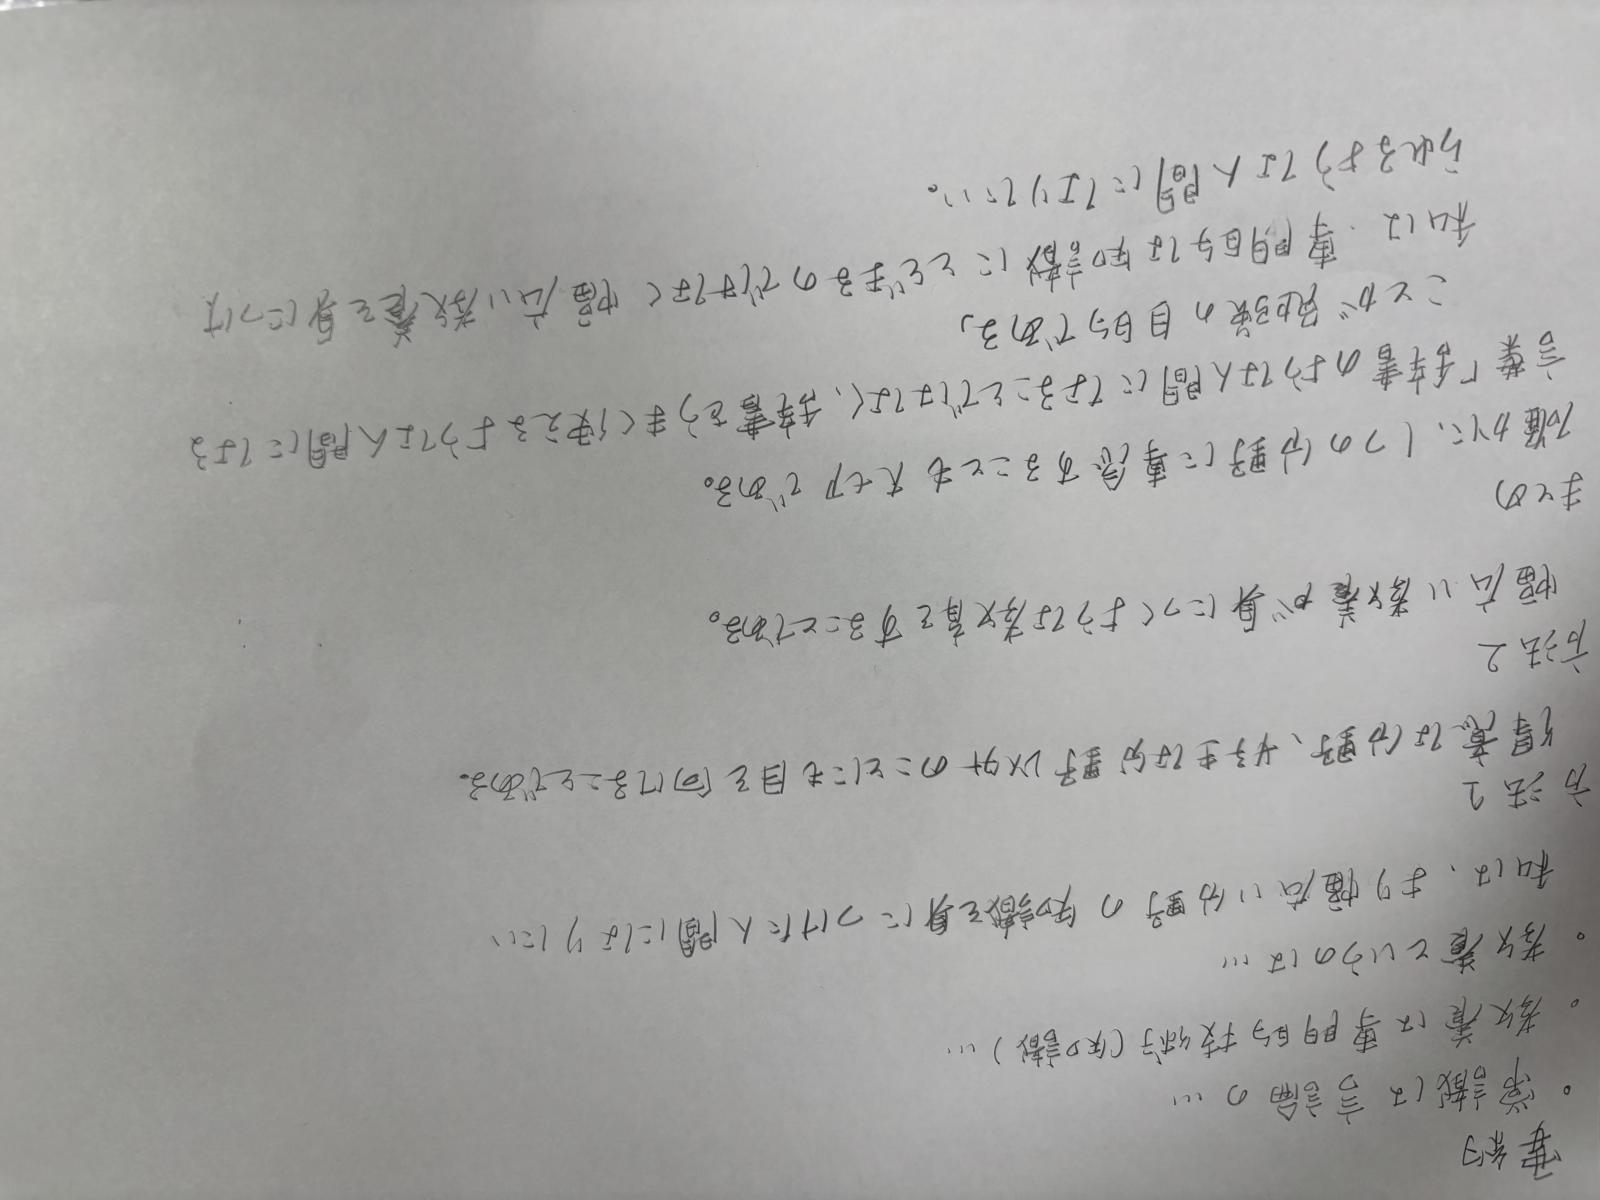 要約
・常識は言論の…
・教養は専門的技術(知識)…
・教養というのは…
私は、より幅広い分野の知識を身につけた人間になりたい
方法1
得意な分野、好きな分野以外のことにも目を向けることである。
方法2
幅広い教養が身につくような教育をすることである。
まとめ
確かに、1つの分野に専念することも大切である。
言葉「辞書のような人間になることではなく、辞書をうまく使えるような人間になる
ことが勉強の目的である」
私は、専門的な知識にとどまるのではなく幅広い教養を身につけ
られるような人間になりたい。